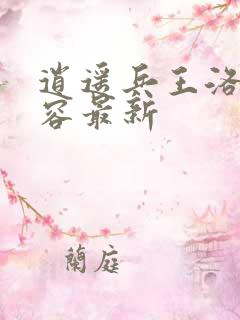 逍遥兵王洛
容最新
蘭庭